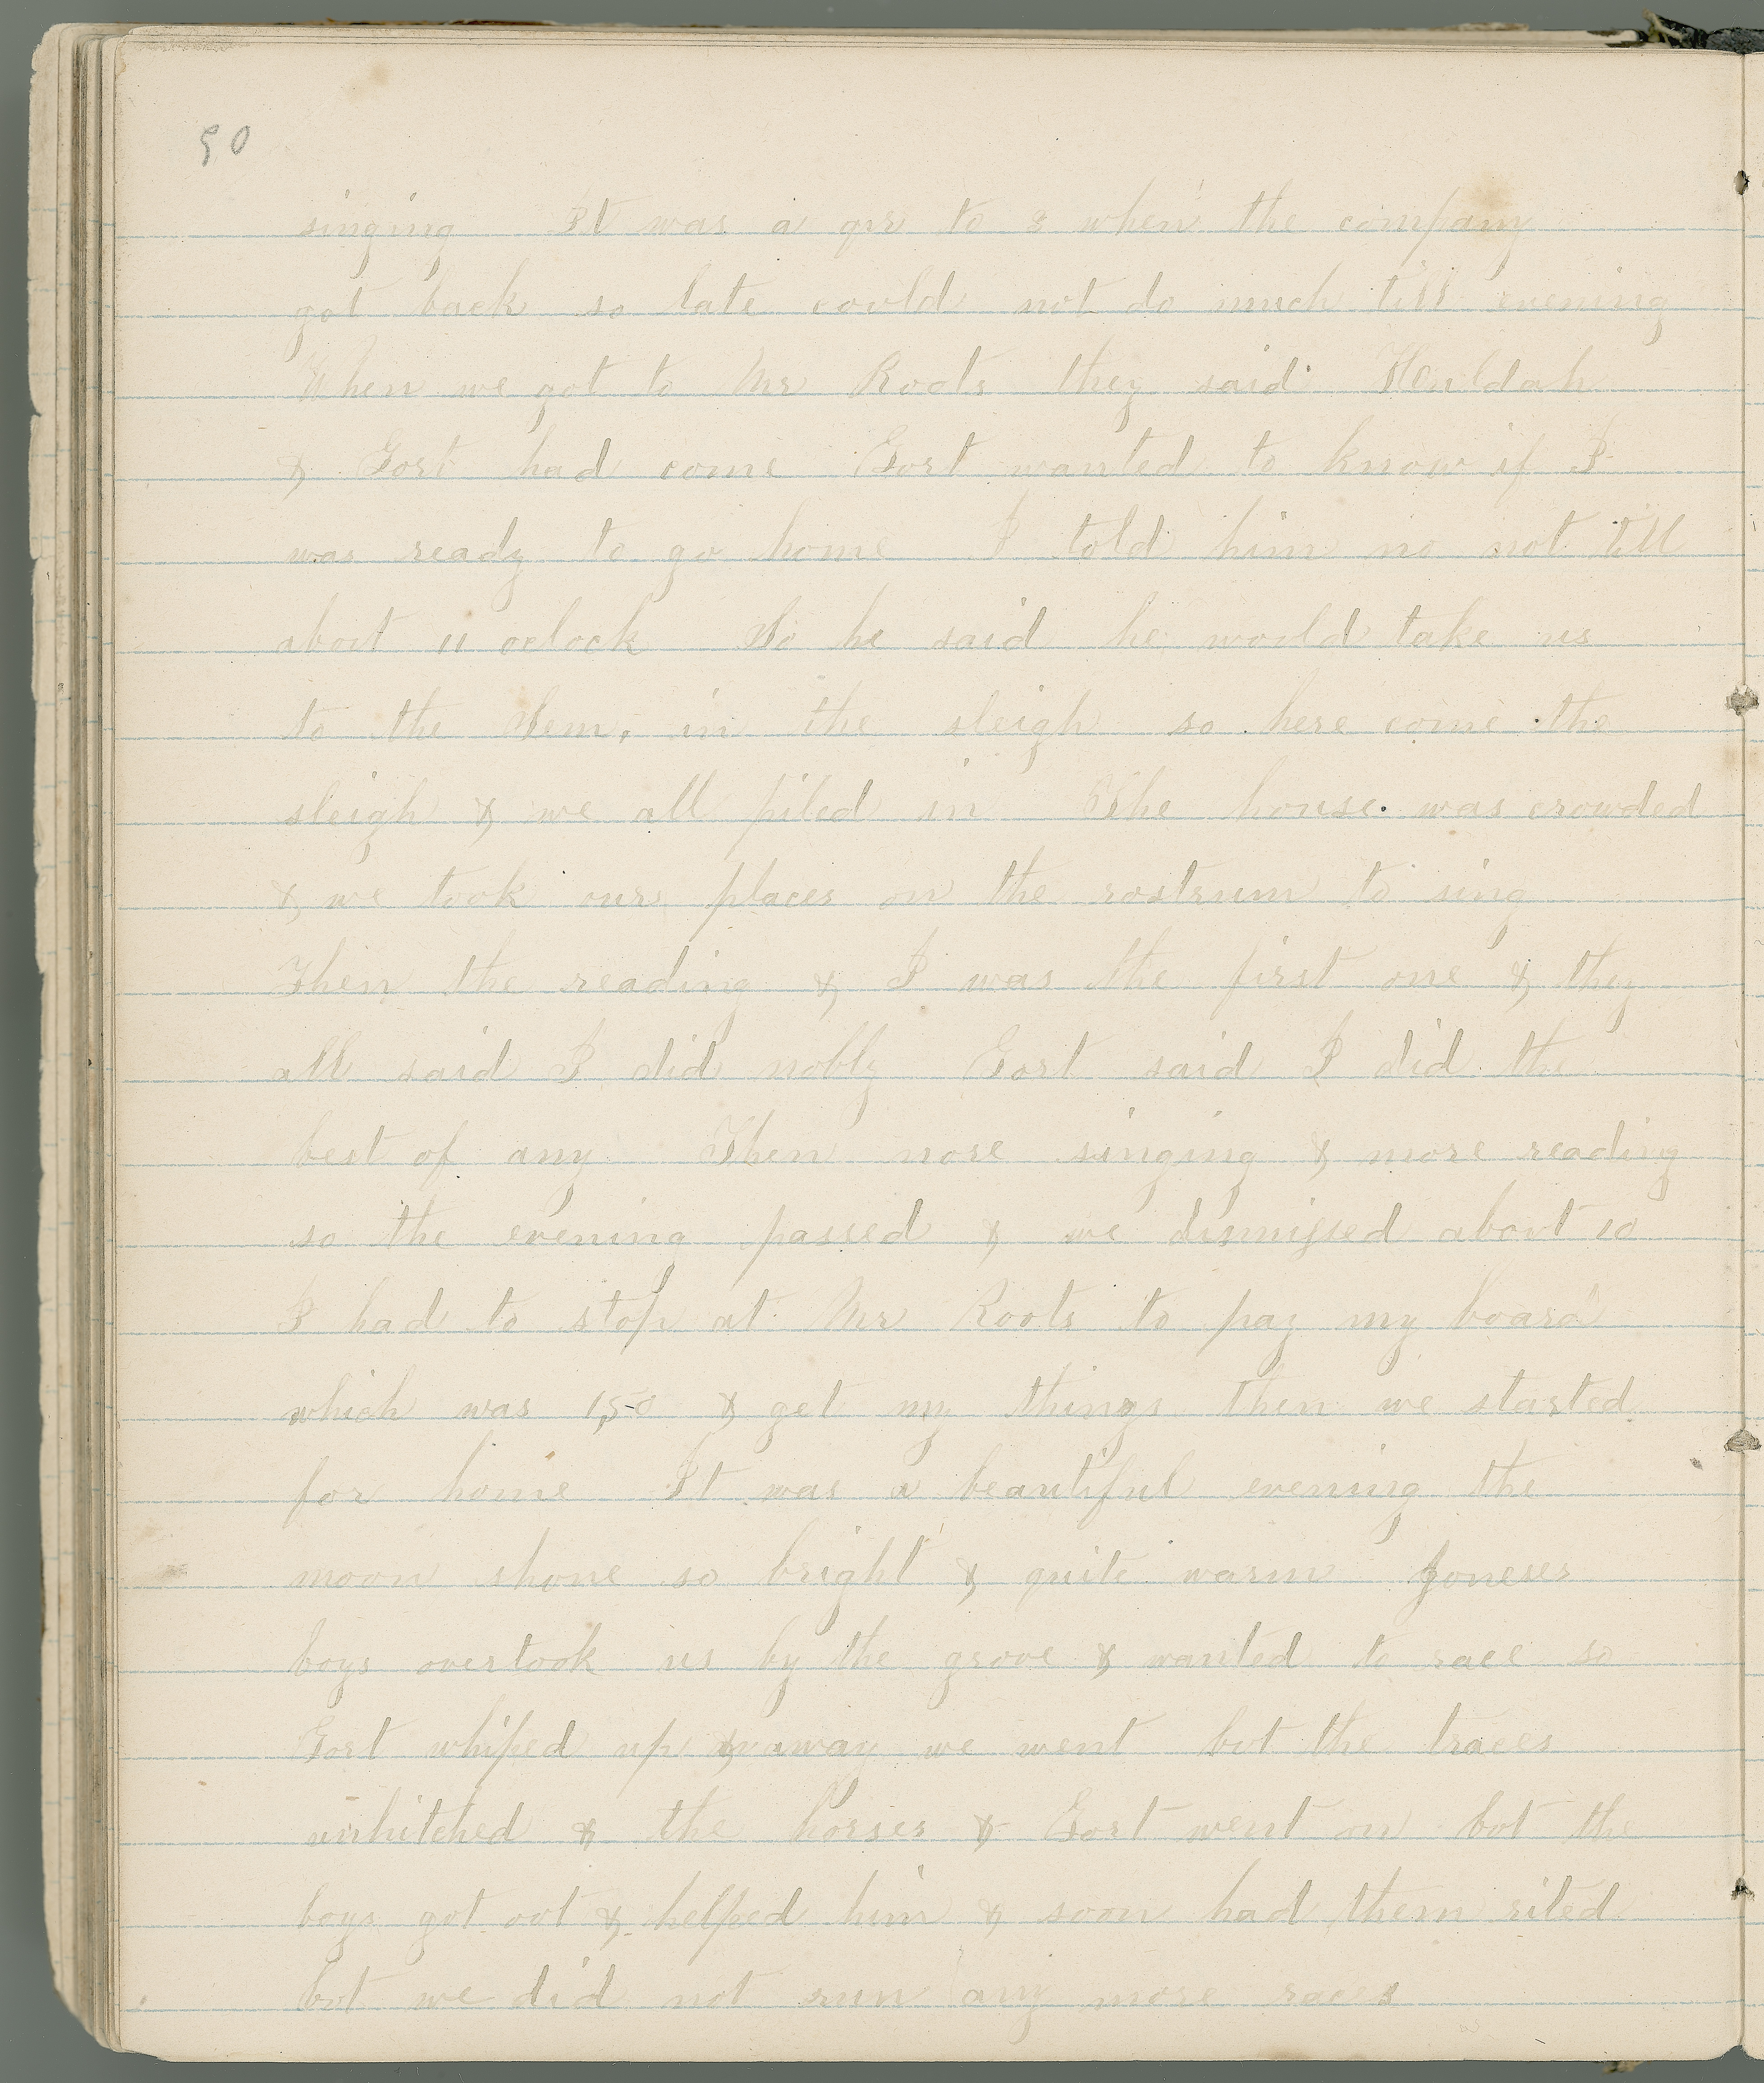 90
singing It was a qr to 8 when the company
got back so late could not do much till evening
When we got to Mr Roots they said Huldah
& Gort had come Gort wanted to know if I
was ready to go home I told him no not till
about 11 oclock So he said he would take us
to the Sem. in the sleigh so here come the
sleigh & we all piled in The house was crowded
& we took our places on the rostrum to sing
Then the reading & I was the first one & they
all said I did nobly Gort said I did the
best of any Then more singing & more reading
so the evening passed & we dismissed about 10
I had to stop at Mr Roots to pay my board
which was 1,50 & get my things then we started
for home It was a beautiful evening the
moon shone so bright & quite warm Joneses
boys overtook us by the grove & wanted to race so
Gort whiped up & away we went but the traces
unhitched & the horses & Gort went on but the
boys got out & helped him & soon had them rited
but we did not run any more races